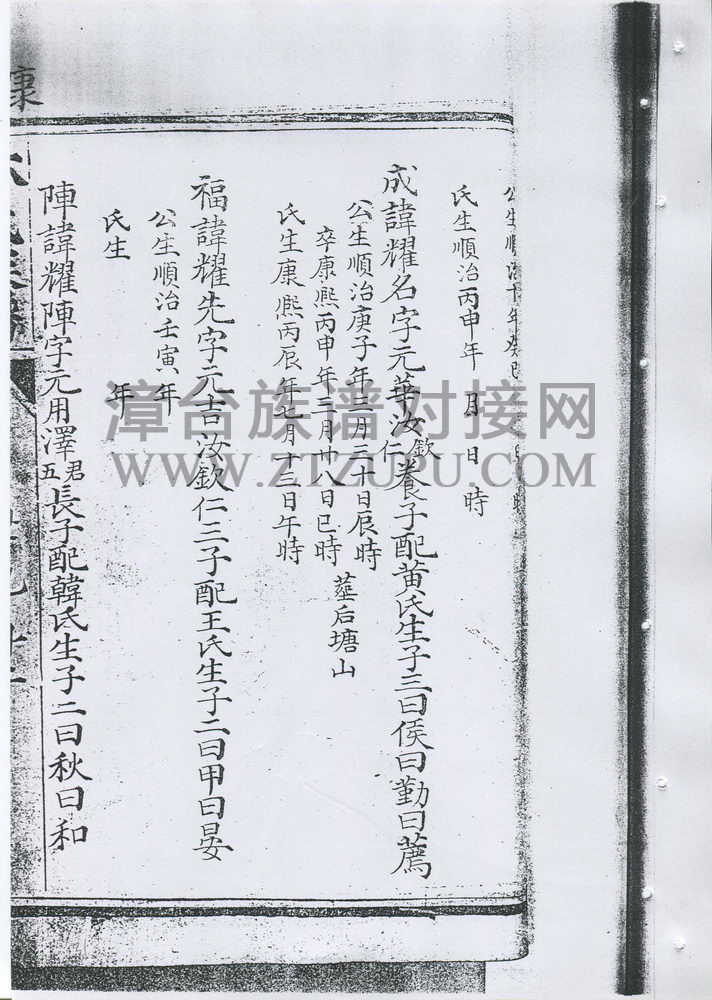 公生順治十年癸巳
氏生順治丙申年 月 日 時
成諱耀名字元華汝欽仁養子配黃氏生子三曰侯曰勤曰薦
公生順治庚子年三月三十日辰時
卒康熙丙申年二月廿八日巳時
塟后塘山
氏生康熙丙辰年七月十三日午時
福諱耀先字元吉汝欽仁三子配王氏生子二曰甲曰晏
公生順治壬寅年
氏生 年
陣諱耀陣字元用澤君五長子配韓氏生子二曰秋曰和
康
漳台族谱对接网
WWW.ZTZUPU.COM